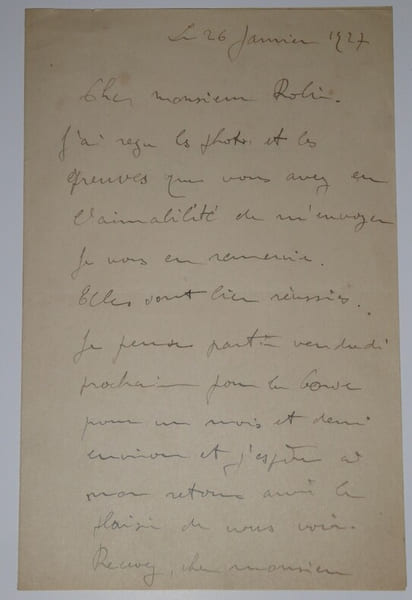 Le 26 Janvier 1927
Cher monsieur Robin.
J'ai reçu les photos et les
épreuves que vous avez eu
l'aimabilité de m'envoyer
Je vous en remercie.
Elles sont bien réussies.
Je pense partir vendredi
prochain pour la
pour un mois et demi
environ et j'espère à
mon retour avoir le
plaisir de vous voir.
Recevez, cher monsieur